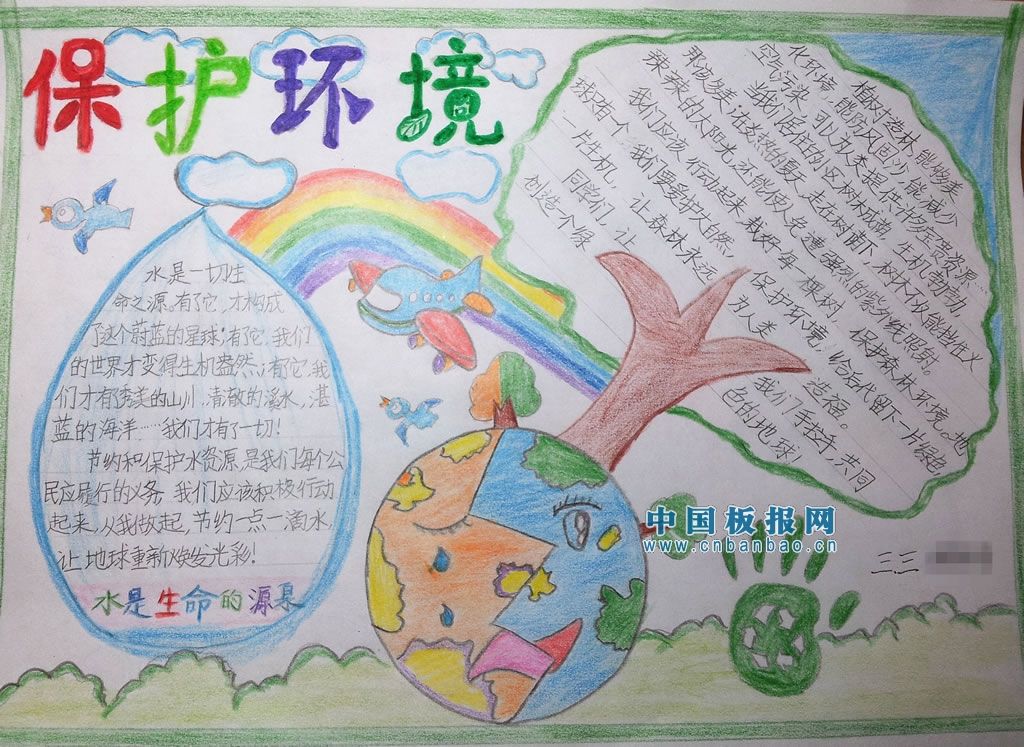 保护环境
水是一切生
命之源。有了它,才构成
了这个蔚蓝的星球;有了它,我们
的世界才变得生机盎然;有了它,我
们才有秀美的山川,清澈的溪水,湛
蓝的海洋……我们才有了一切!
节约和保护水资源,是我们每个公
民应履行的义务,我们应该积极行动
起来,从我做起,节约一点一滴水,
让地球重新焕发光彩!
水是生命的源泉
植树造林,能够美
化环境,能防风固沙,能减少
空气污染,可以为人类提供许多宝贵资源……
当我们居住的小区树木成荫,生机勃勃,
那该多美;在炎热的夏天,走在树荫下,树木不仅能挡住火
辣辣的太阳光,还能使人免遭强烈的紫外线照射。
我们应该行动起来,栽好每一棵树,保护森林环境。地
球只有一个,我们要爱护大自然,保护环境,给后代留下一片绿色
一片生机,让森林永远为人类造福。
同学们,让我们手拉手,共同
创造一个绿色的地球!
中国板报网
www.cnbanbao.cn
三三